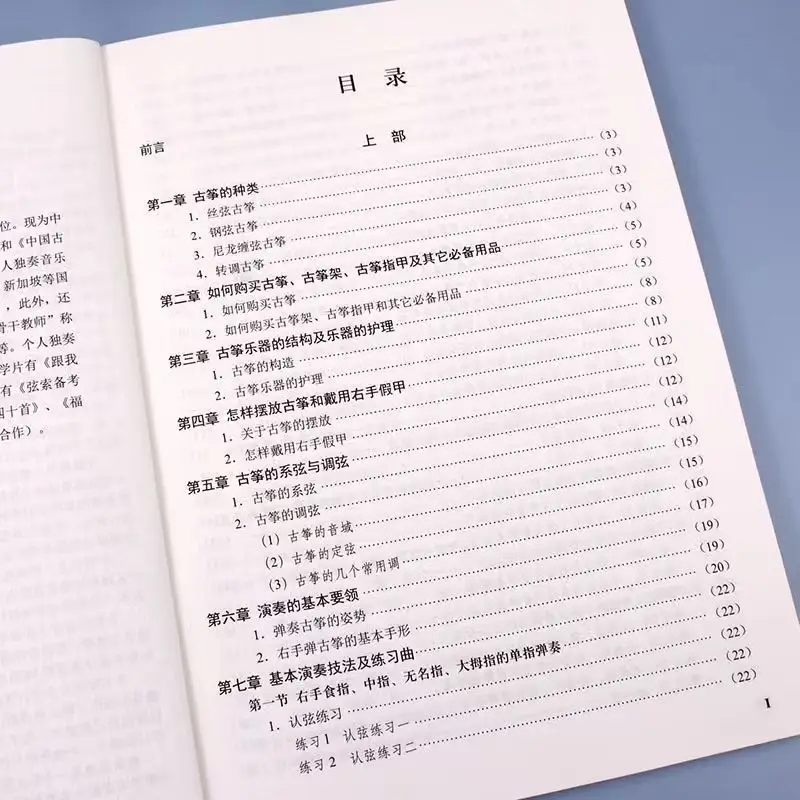 位。现为中
和《中国古
人独奏音乐
新加坡等国
，此外，还
骨干教师”称
等。个人独奏
学片有《跟我
有《弦索备考
四十首》、《福
合作）。
目 录
前言
上 部
第一章 古筝的种类……(3)
1. 丝弦古筝……(3)
2. 钢弦古筝……(3)
3. 尼龙缠弦古筝……(3)
4. 转调古筝……(4)
第二章 如何购买古筝、古筝架、古筝指甲及其它必备用品……(5)
1. 如何购买古筝……(5)
2. 如何购买古筝架、古筝指甲和其它必备用品……(5)
第三章 古筝乐器的结构及乐器的护理……(8)
1. 古筝的构造……(8)
2. 古筝乐器的护理……(11)
第四章 怎样摆放古筝和戴用右手假甲……(12)
1. 关于古筝的摆放……(12)
2. 怎样戴用右手假甲……(12)
第五章 古筝的系弦与调弦……(14)
1. 古筝的系弦……(14)
2. 古筝的调弦……(15)
(1) 古筝的音域……(15)
(2) 古筝的定弦……(16)
(3) 古筝的几个常用调……(17)
第六章 演奏的基本要领……(19)
1. 弹奏古筝的姿势……(19)
2. 右手弹古筝的基本手形……(20)
第七章 基本演奏技法及练习曲……(22)
第一节 右手食指、中指、无名指、大拇指的单指弹奏……(22)
1. 认弦练习……(22)
练习1 认弦练习一……(22)
练习2 认弦练习二……(22)
I